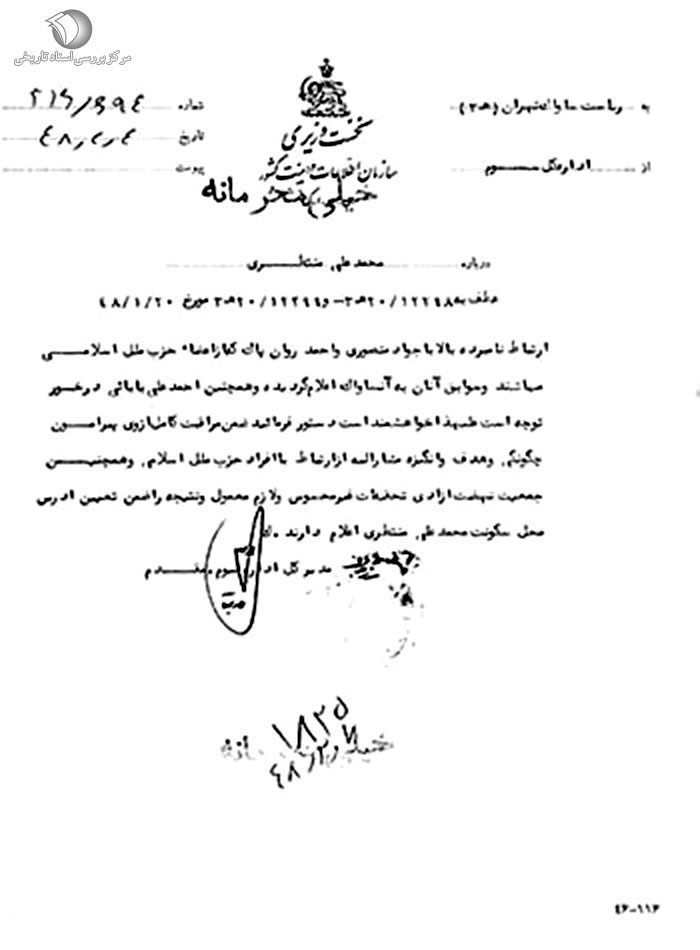 مرکز بررسی اسناد تاریخی
نخست وزیری
سازمان اطلاعات و امنیت کشور
خیلی محرمانه
به ریاست ساواک تهران (هـ ۳)
از اداره کل سوم
شماره ۳۱۶/۶۹۴
تاریخ ۴۸/۲/۴
پیوست
درباره محمدعلی منتظری
عطف به ۲۰/۱۲۲۹۸هـ۳- و ۲۰/۱۲۲۹۹هـ۳ مورخ ۴۸/۱/۲۰
ارتباط نامبرده بالا با جواد منصوری و احمد روان پاک که از اعضاء حزب ملل اسلامی
میباشند و سوابق آنان به آن ساواک اعلام گردیده و همچنین احمد علی بابائی در خور
توجه است علیهذا خواهشمند است دستور فرمائید ضمن مراقبت کامل از وی پیرامون
چگونگی و هدف و انگیزه مشارالیه از ارتباط با افراد حزب ملل اسلامی و همچنین
جمعیت نهضت آزادی تحقیقات غیر محسوس و لازم معمول و نتیجه را ضمن تعیین ادرس
محل سکونت محمدعلی منتظری اعلام دارند.
مدیر کل اداره سوم. مقدم
۱۸۲۵
۴۸/۲/۷
خیلی محرمانه
۴۶-۱۱۲